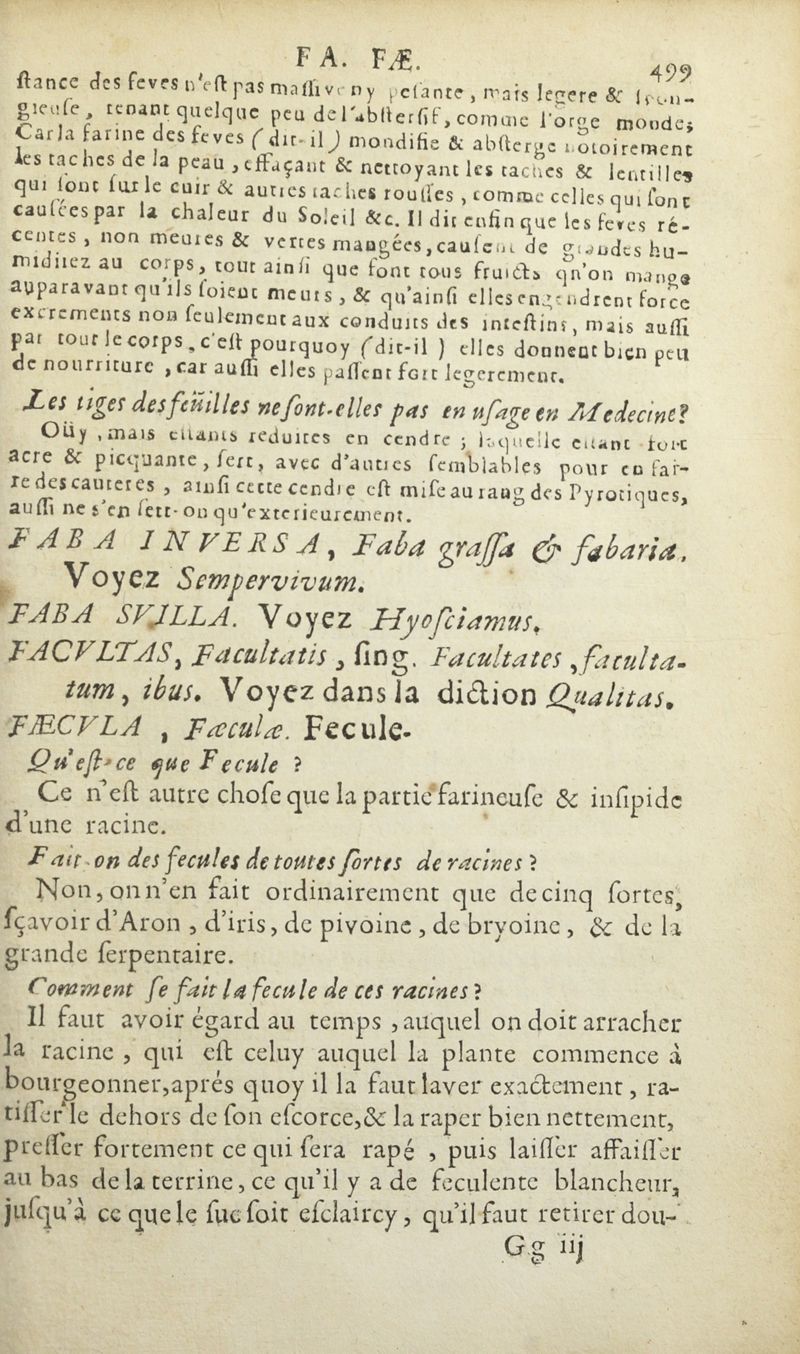 FA. FÆ. 499
ſtance des feves n'eſt pas maſſive ny peſante, mais legere & ſpon-
gieuſe, tenant quelque peu de l'abſterſif, comme l'orge mondé;
Car la farine des feves (dit-il) mondifie & abſterge notoirement
les taches de la peau, effaçant & nettoyant les taches & lentilles
qui ſont ſur le cuir & autres taches rouſſes, comme celles qui ſont
cauſées par la chaleur du Soleil &c. Il dit enfin que les feves ré-
centes, non meures & vertes mangées, cauſent de grandes hu-
miditez au corps, tout ainſi que font tous fruicts qu'on mange
apparavant qu'ils ſoient meurs, & qu'ainſi elles engendrent force
excrements non ſeulement aux conduits des inteſtins, mais auſſi
par tour le corps, c'eſt pourquoy (dit-il) elles donnent bien peu
de nourriture, car auſſi elles paſſent fort legerement.
Les tiges des feüilles ne ſont-elles pas en uſage en Medecine?
Oüy, mais eſtants reduites en cendre; laquelle eſtant fort
acre & picquante, ſert, avec d'autres ſemblables pour en fai-
re des cauteres, ainſi cette cendre eſt miſe au rang des Pyrotiques,
auſſi ne s'en ſert-on qu'exterieurement.
FABA INVERSA, Faba graſſa & fabaria.
Voyez Sempervivum.
FABA SVILLA. Voyez Hyoſciamus.
FACVLTAS, Facultatis, ſing. Facultates, faculta-
tum, ibus. Voyez dans la diction Qualitas.
FÆCVLA, Fæculæ. Fecule-
Qu'eſt-ce que Fecule?
Ce n'eſt autre choſe que la partie farineuſe & inſipide
d'une racine.
Fait-on des fecules de toutes ſortes de racines?
Non, on n'en fait ordinairement que de cinq ſortes,
ſçavoir d'Aron, d'iris, de pivoine, de bryoine, & de la
grande ſerpentaire.
Comment ſe fait la fecule de ces racines?
Il faut avoir égard au temps, auquel on doit arracher
la racine, qui eſt celuy auquel la plante commence à
bourgeonner, aprés quoy il la faut laver exactement, ra-
tiſſer le dehors de ſon eſcorce, & la raper bien nettement,
preſſer fortement ce qui ſera rapé, puis laiſſer affaiſſer
au bas de la terrine, ce qu'il y a de feculente blancheur,
juſqu'à ce que le ſuc ſoit eſclaircy, qu'il faut retirer dou-
Gg iij